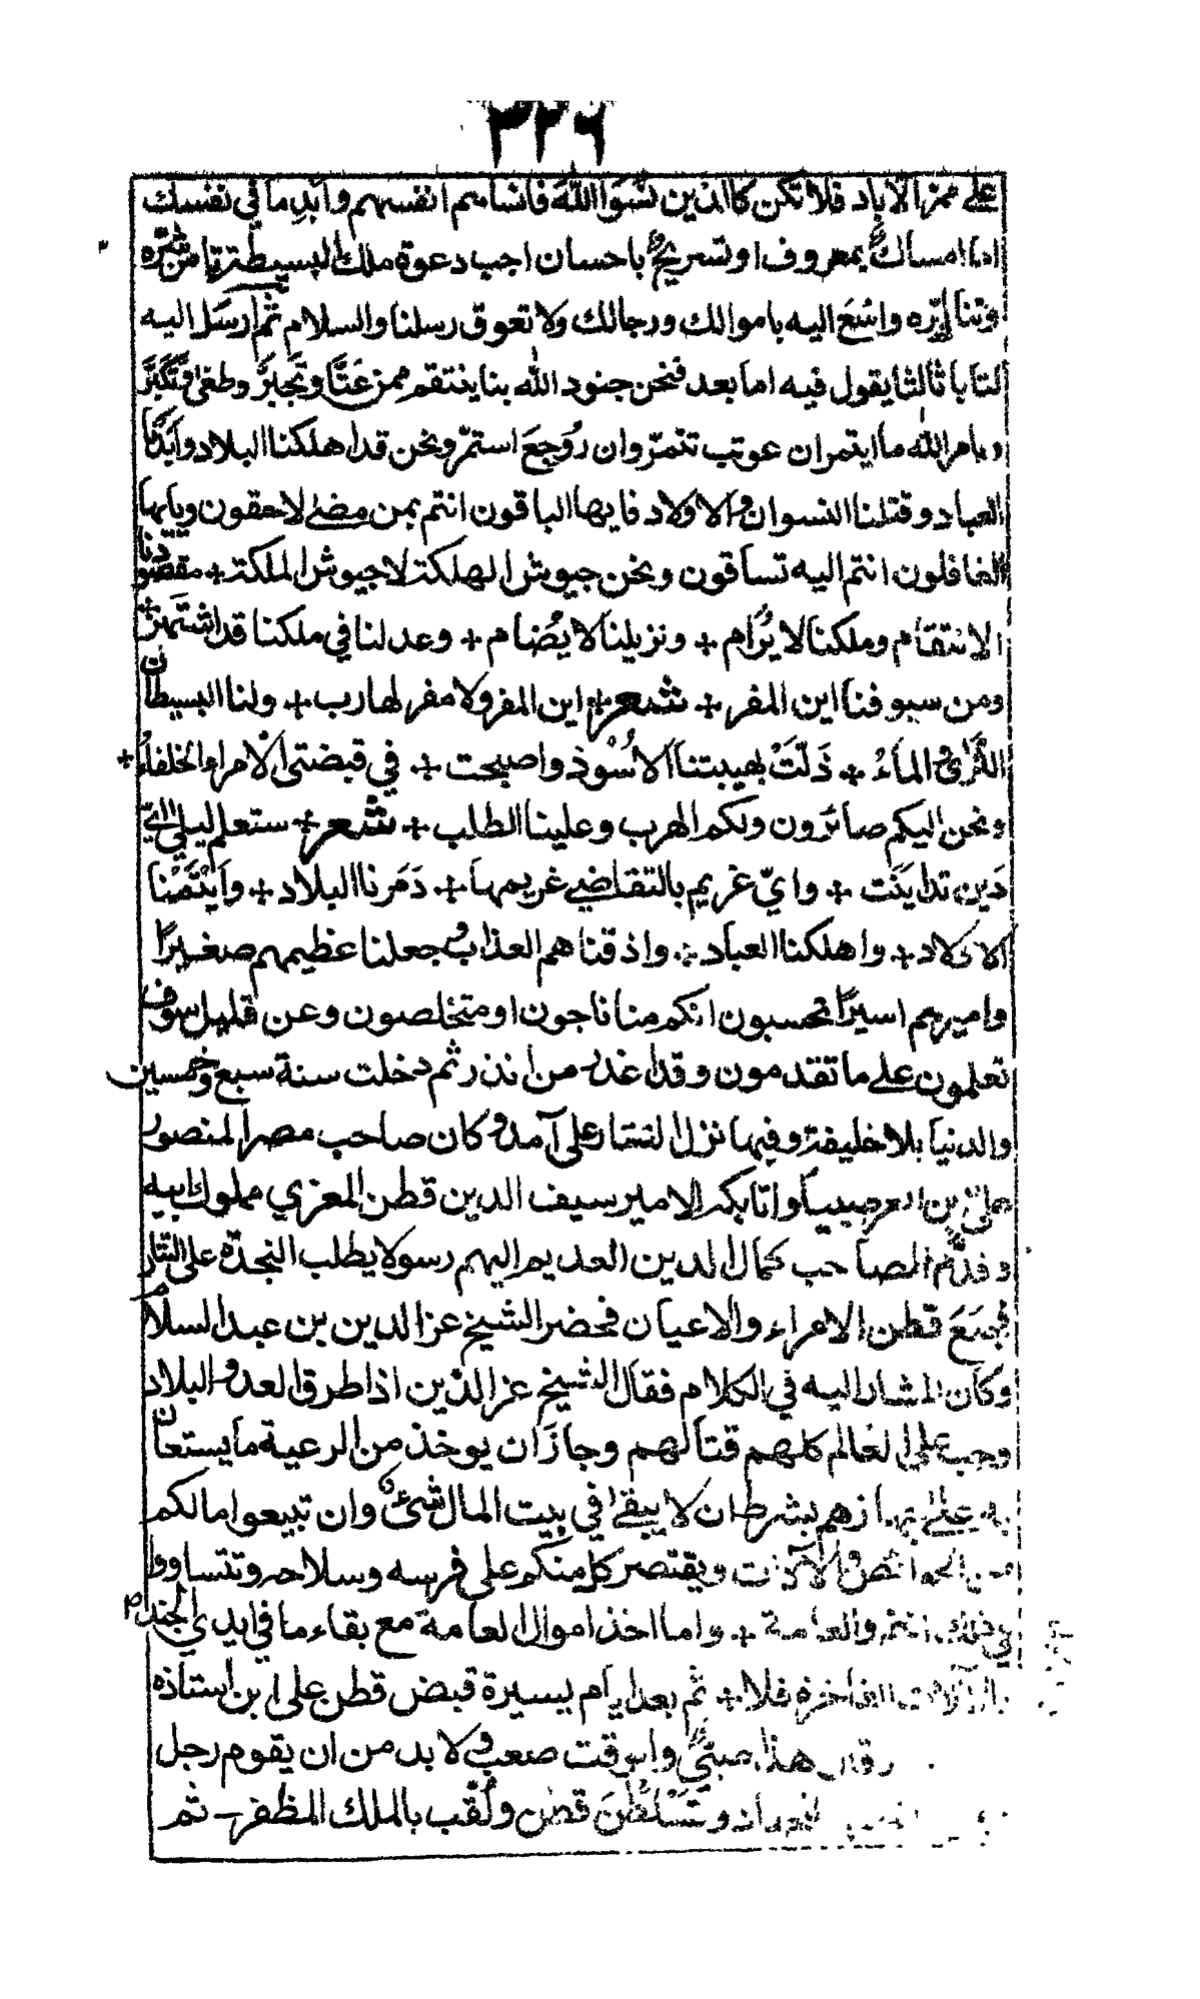 ٣٢٦
على ممر الآباد فلا تكن كالذين نسوا الله فانساهم انفسهم وابد ما في نفسك
اما امساك بمعروف او تسريح باحسان اجب دعوة ملك البسيطة تامن شره
وتنا بره واسع اليه باموالك ورجالك ولا تعوق رسلنا والسلام ثم ارسل اليه
كتابا ثالثا يقول فيه اما بعد فنحن جنود الله بنا ينتقم ممن عتا وتجبر وطغى وتكبر
وبامر الله ما ايتمر ان عوتب تنمر وان روجع استمر ونحن قد اهلكنا البلاد وابدنا
العباد وقتلنا النسوان والاولاد فايها الباقون انتم بمن مضى لاحقون ويايها
الغافلون انتم اليه تساقون ونحن جيوش الهلكة لا جيوش الملكة + مقصودنا
الانتقام وملكنا لا يرام + ونزيلنا لا يضام + وعدلنا في ملكنا قد اشتهر +
ومن سيوفنا اين المفر + شعر + اين المفر ولا مفر لهارب + ولنا البسيطان
الثرى والماء + ذلت لهيبتنا الاسود واصبحت + في قبضتي الامراء والخلفاء +
ونحن اليكم صائرون ولكم الهرب وعلينا الطلب + شعر + ستعلم ليلى اي
دين تداينت + واي غريم بالتقاضي غريمها + دمرنا البلاد + وايتمنا
الاولاد + واهلكنا العباد + واذقناهم العذاب وجعلنا عظيمهم صغيرا
واميرهم اسيرا تحسبون انكم منا ناجون او متخلصون وعن قليل سوف
تعلمون على ما تقدمون وقد اغدر من انذر ثم دخلت سنة سبع وخمسين
والدنيا بلا خليفة وفيها نزل التتار على آمد وكان صاحب مصر المنصور
علي بن المعز صبيا واتابكه الامير سيف الدين قطن المعزي مملوك ابيه
وقدم الصاحب كمال الدين العديم اليهم رسولا يطلب النجدة على التتار
فجمع قطن الامراء والاعيان فحضر الشيخ عز الدين بن عبد السلام
وكان المشار اليه في الكلام فقال الشيخ عز الدين اذا طرق العدو البلاد
وجب على العالم كلهم قتالهم وجاز ان يوخذ من الرعية ما يستعان
به على جهازهم بشرط ان لا يبقى في بيت المال شيء وان تبيعوا مالكم
من الحوائص والآلات ويقتصر كل منكم على فرسه وسلاحه وتتساووا
في ذلك انتم والعامة + واما اخذ اموال العامة مع بقاء ما في ايدي الجند
من الآلات الفاخرة فلا + ثم بعد ايام يسيرة قبض قطن على ابن استاذه
وقال هذا صبي والوقت صعب ولا بد من ان يقوم رجل
وتسلطن قطن ولقب بالملك المظفر ثم